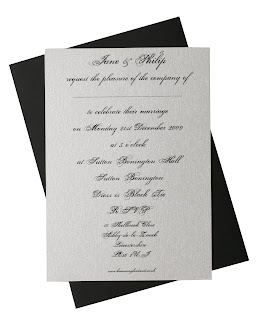 Jane & Philip
request the pleasure of the company of
to celebrate their marriage
on Monday 21st December 2009
at 5 o'clock
at Sutton Bonington Hall
Sutton Bonington
Dress is Black Tie
R S V P
Close
Ashby-de-la-Zouch
Leicestershire